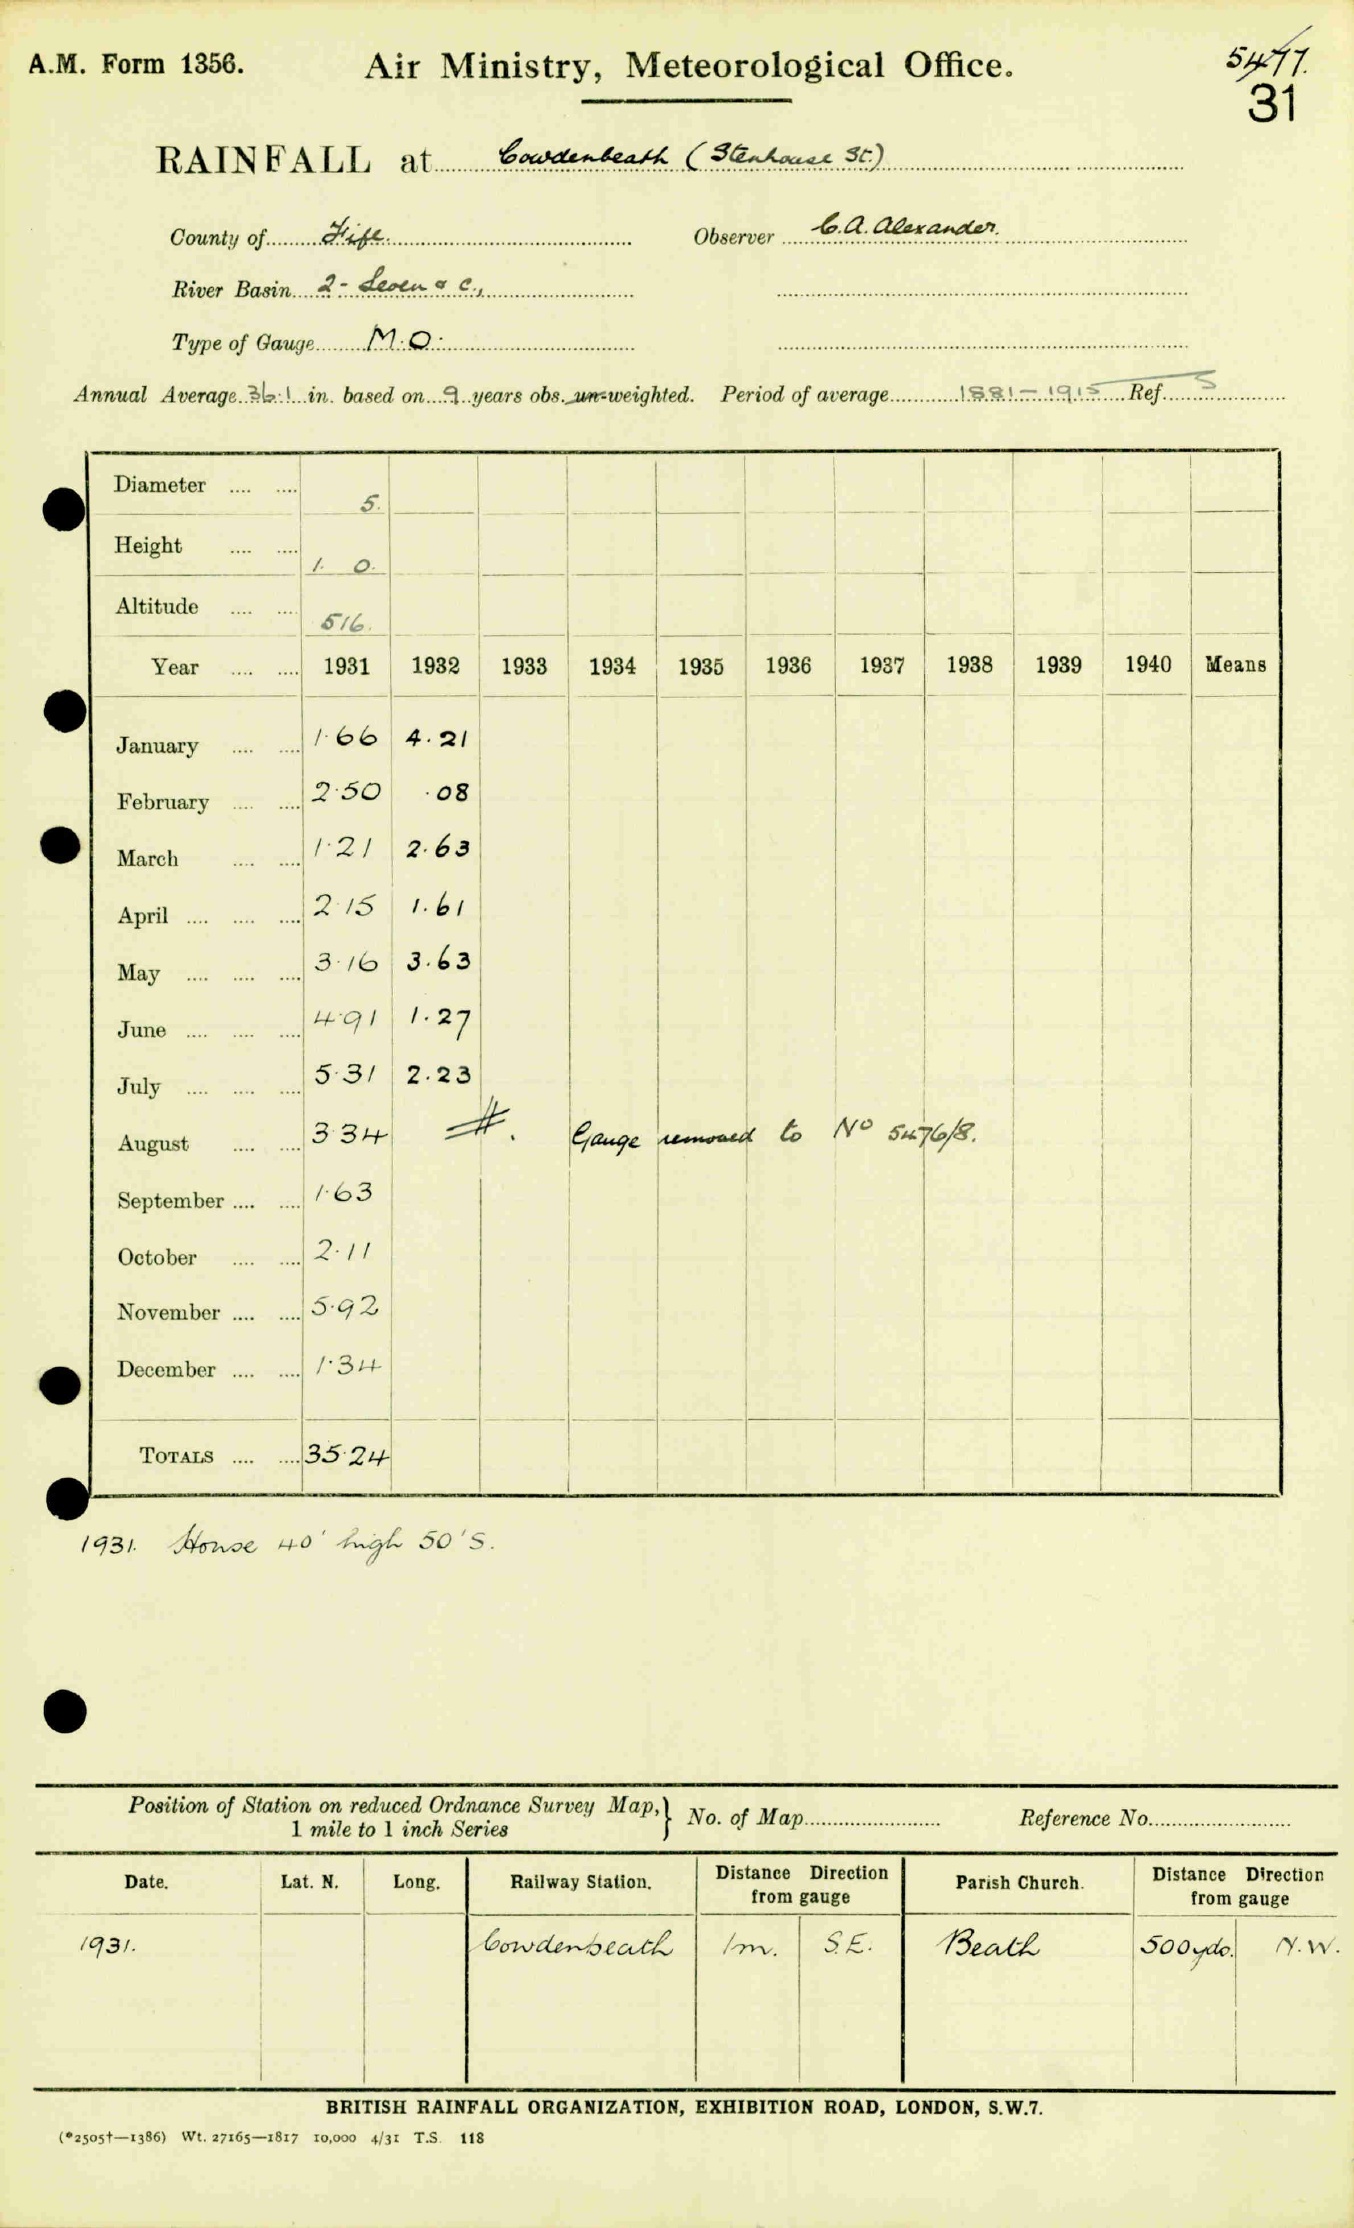 A.M. Form 1356. Air Ministry, Meteorological Office. 5477.
31
RAINFALL at Cowdenbeath (Stenhouse St.)
County of Fife. Observer C.A. Alexander.
River Basin 2 - Leven & c.,
Type of Gauge M.O.
Annual Average 36.1 in. based on 9 years obs. un-weighted. Period of average 1881-1915 Ref. S
Diameter .... .... 5.
Height .... .... 1. 0.
Altitude .... .... 516.
Year .... .... 1931 1932 1933 1934 1935 1936 1937 1938 1939 1940 Means
January .... .... 1.66 4.21
February .... .... 2.50 .08
March .... .... 1.21 2.63
April .... .... .... 2.15 1.61
May .... .... .... 3.16 3.63
June .... .... .... 4.91 1.27
July .... .... .... 5.31 2.23
August .... .... 3.34 Gauge removed to No 5476/8.
September .... .... 1.63
October .... .... 2.11
November .... .... 5.92
December .... .... 1.34
TOTALS .... .... 35.24
1931. House 40' high 50' S.
Position of Station on reduced Ordnance Survey Map, } No. of Map Reference No.
1 mile to 1 inch Series
Date. Lat. N. Long. Railway Station. Distance Direction from gauge Parish Church. Distance Direction from gauge
1931. Cowdenbeath 1m. S.E. Beath 500yds. N.W.
BRITISH RAINFALL ORGANIZATION, EXHIBITION ROAD, LONDON, S.W.7.
(*2505†—1386) Wt. 27165—1817 10,000 4/31 T.S. 118